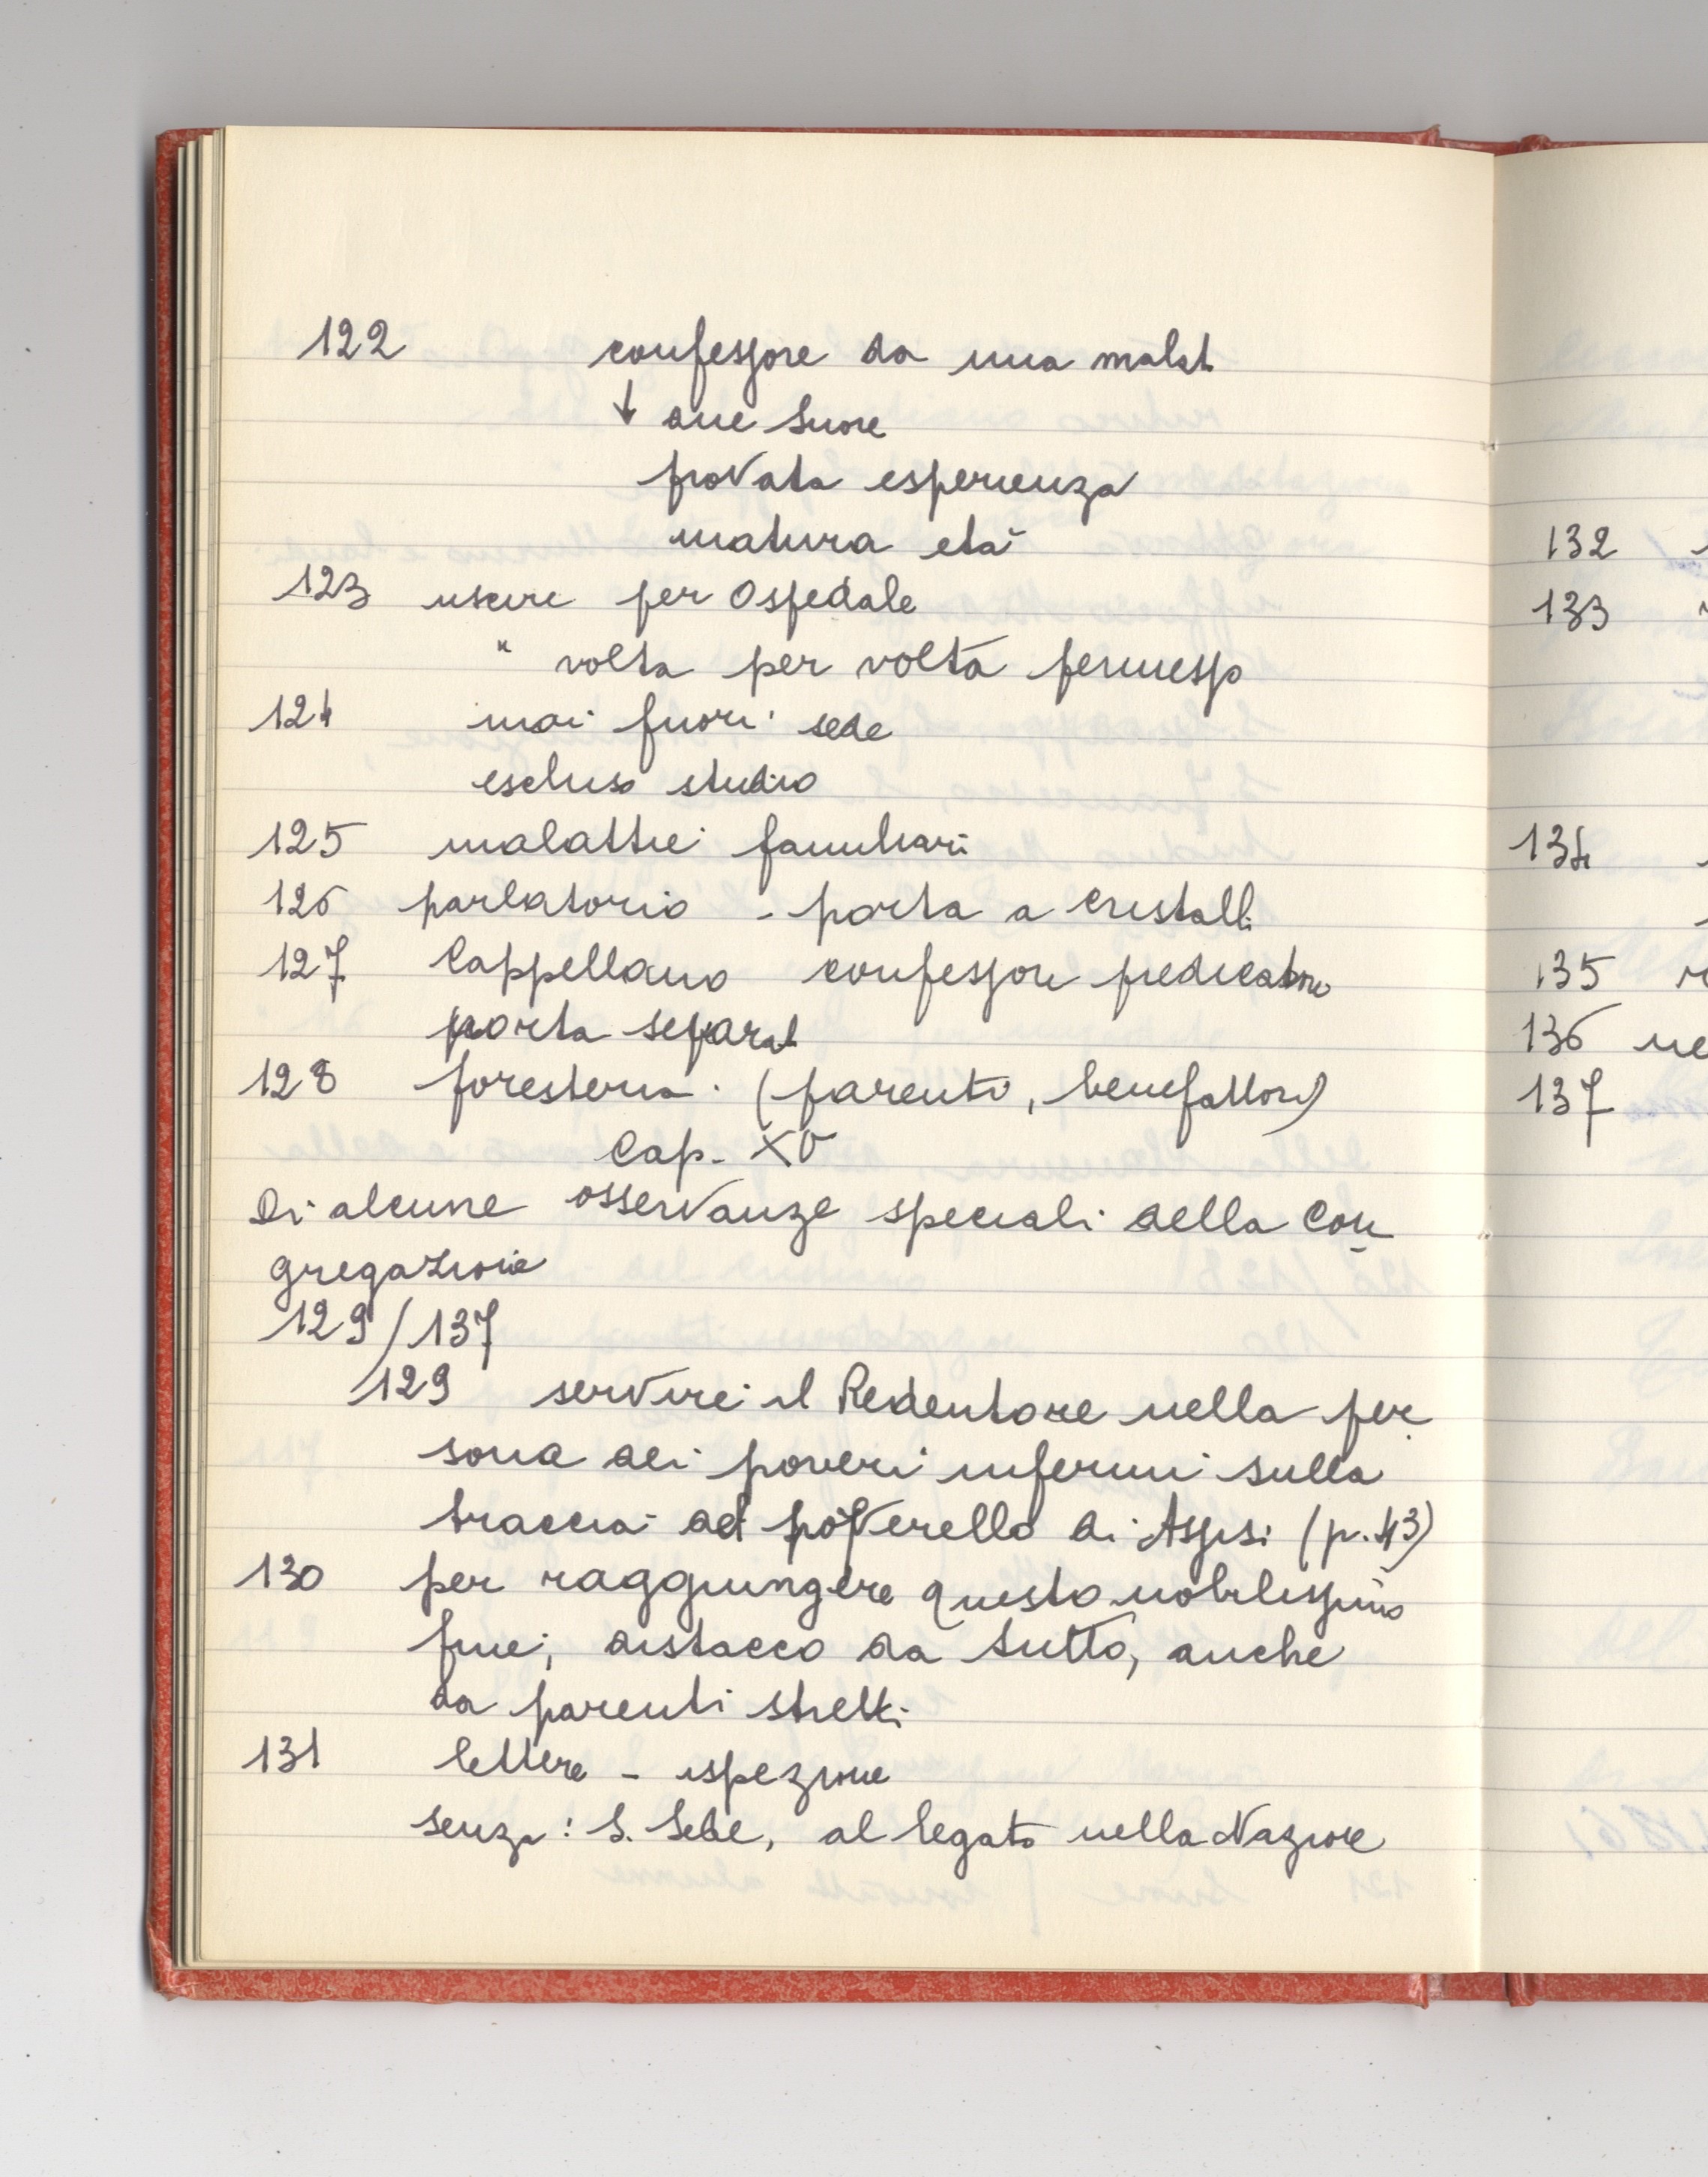 122 confessore da una malat
↓ due Suore
provata esperienza
matura età
123 uscire per Ospedale
" volta per volta permesso
124 mai fuori sede
escluso studio
125 malattie familiari
126 parlatorio - porta a cristalli
127 Cappellano confessore predicatore
porta separat
128 foresteria (parenti, benefattori)
Cap. XV
Di alcune osservanze speciali della Con
gregazione
129/137
129 servire il Redentore nella per
sona dei poveri infermi sulla
traccia del poverello di Assisi (p. 43)
130 per raggiungere questo nobilissimo
fine, distacco da tutto, anche
da parenti stretti
131 lettere - ispezione
senza: S. Sede, al legato nella Nazione
132
133
134
135
136 ne
137